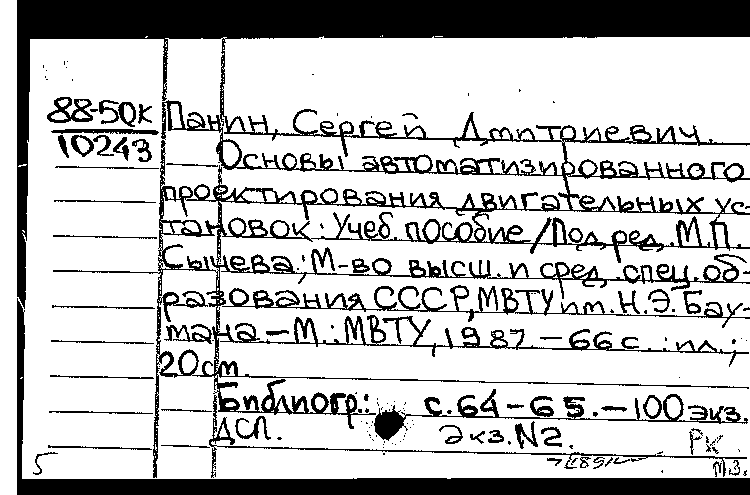 88-5QK
10243
Панин, Сергей Дмитриевич.
Основы автоматизированного
проектирования двигательных ус-
тановок: Учеб. пособие /Под ред. М.П.
Сычева; М-во высш. и сред. спец. об-
разования СССР, МВТУ им. Н.Э. Бау-
мана.-М.: МВТУ, 1987.-66с.: ил.;
20см.
Библиогр.: с.64-65.-100 экз.
ДСП. Экз.N2.
РК
5 М.З.